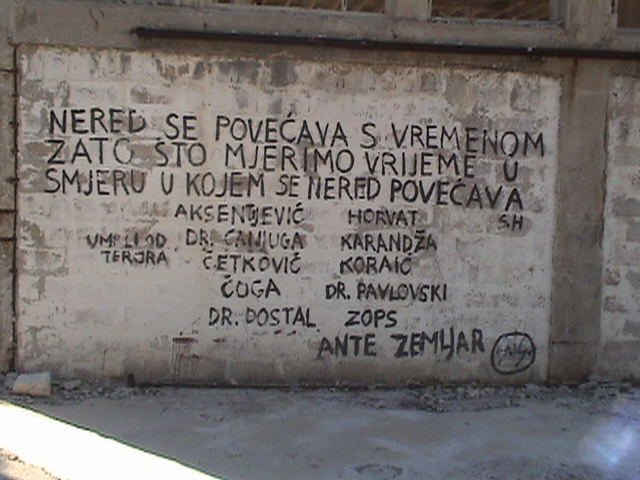 NERED SE POVEĆAVA S VREMENOM
ZATO ŠTO MJERIMO VRIJEME U
SMJERU U KOJEM SE NERED POVEĆAVA
S.H
UMRLI OD
TERORA
AKSENTIJEVIĆ HORVAT
DR. CANJUGA KARANDŽA
ČETKOVIĆ KORAIĆ
ČUGA DR. PAVLOVSKI
DR. DOSTAL ZOPS
ANTE ZEMLJAR